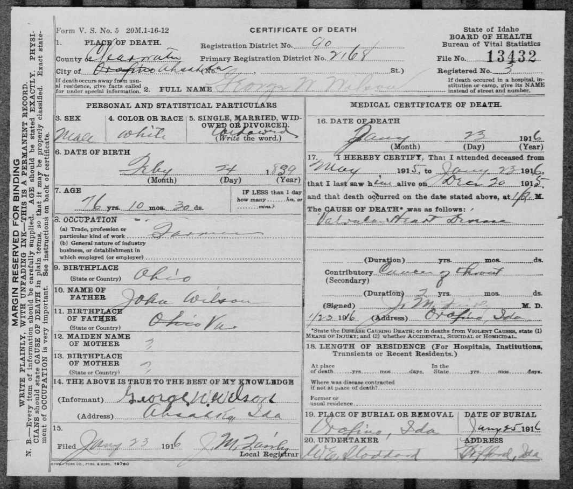 Form V. S. No. 5 20M.1-16-12
CERTIFICATE OF DEATH
State of Idaho
BOARD OF HEALTH
Bureau of Vital Statistics
1. PLACE OF DEATH.
County of Clearwater
City of Orofino Ahsahka
Registration District No. 90
Primary Registration District No. 2168
St.)
File No. 13432
Registered No. 3
If death occurs away from usual residence, give facts called for under special information.
2. FULL NAME George W Wilson
If death occurred in a hospital, institution or camp, give its NAME instead of street and number.
PERSONAL AND STATISTICAL PARTICULARS
3. SEX
Male
4. COLOR OR RACE
White
5. SINGLE, MARRIED, WIDOWED OR DIVORCED.
Widowed
(Write the word.)
6. DATE OF BIRTH
Feby 4 1839
(Month) (Day) (Year)
7. AGE
76 yrs. 10 mos. 20 ds.
IF LESS than 1 day
how many hrs. or min.?
8. OCCUPATION
(a) Trade, profession or particular kind of work
Farmer
(b) General nature of industry business, or establishment in which employed (or employer)
9. BIRTHPLACE
(State or Country)
Ohio
10. NAME OF FATHER
John Wilson
11. BIRTHPLACE OF FATHER
(State or Country)
Ohio Va
12. MAIDEN NAME OF MOTHER
?
13. BIRTHPLACE OF MOTHER
(State or Country)
?
14. THE ABOVE IS TRUE TO THE BEST OF MY KNOWLEDGE
(Informant) George N Wilson
(Address) Ahsahka, Ida
15.
Filed Jany 23 1916
J M Fairly
Local Registrar
MEDICAL CERTIFICATE OF DEATH.
16. DATE OF DEATH
Jany 23 1916
(Month) (Day) (Year)
17. I HEREBY CERTIFY, That I attended deceased from
May 1915, to Jany 23 1916,
that I last saw him alive on Dec 20 1915
and that death occurred on the date stated above, at M.
The CAUSE OF DEATH* was as follows:
Valvular Heart Disease
(Duration) yrs. mos. ds.
Contributory Cancer of throat
(Secondary)
(Duration) 2 yrs. mos. ds.
(Signed) M. D.
1/23 1916 (Address) Orofino, Ida
*State the DISEASE CAUSING DEATH; or in deaths from VIOLENT CAUSES, state (1) MEANS OF INJURY; and (2) whether ACCIDENTAL, SUICIDAL or HOMICIDAL.
18. LENGTH OF RESIDENCE (For Hospitals, Institutions, Transients or Recent Residents.)
At place of death yrs. mos. days. In the State yrs. mos. days
Where was disease contracted
if not at place of death?
Former or
usual residence
19. PLACE OF BURIAL OR REMOVAL
Orofino, Ida
DATE OF BURIAL
Jany 25 1916
20. UNDERTAKER
Stoddard
ADDRESS
Gifford, Ida
MARGIN RESERVED FOR BINDING
WRITE PLAINLY, WITH UNFADING INK—THIS IS A PERMANENT RECORD.
N. B.—Every item of information should be carefully supplied. AGE should be stated EXACTLY. PHYSICIANS should state CAUSE OF DEATH in plain terms, so that it may be properly classified. Exact statement of OCCUPATION is very important. See instructions on back of certificate.